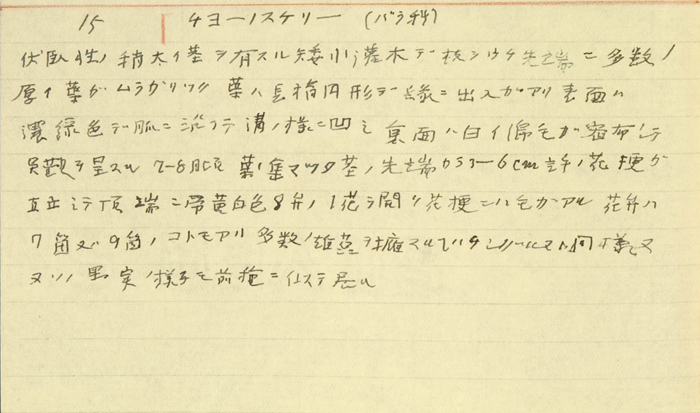 15 チヨーノスケソー (バラ科)
伏臥性ノ稍太イ茎ヲ有スル矮小灌木デ 先端ニ多数ノ
厚イ葉ガムラガリツク 葉ハ長楕円形デ縁ニ出入ガアリ表面ハ
濃緑色デ脈ニ沿フテ溝ノ様ニ凹ミ裏面ハ白イ綿毛ガ密布シテ
美観ヲ呈スル 7-8月頃 葉ノ集マツタ茎ノ先端カラ3-6cm許ノ花梗ガ
直立シテ頂端ニ帯黄白色8弁ノ1花ヲ開ク花梗ニハ毛ガアル 花弁ハ
7箇又ハ9箇ノコトモアル 多数ノ雄蕊ヲ擁スル 同様
又ソノ果実ノ様子モ前種ニ似テ居ル